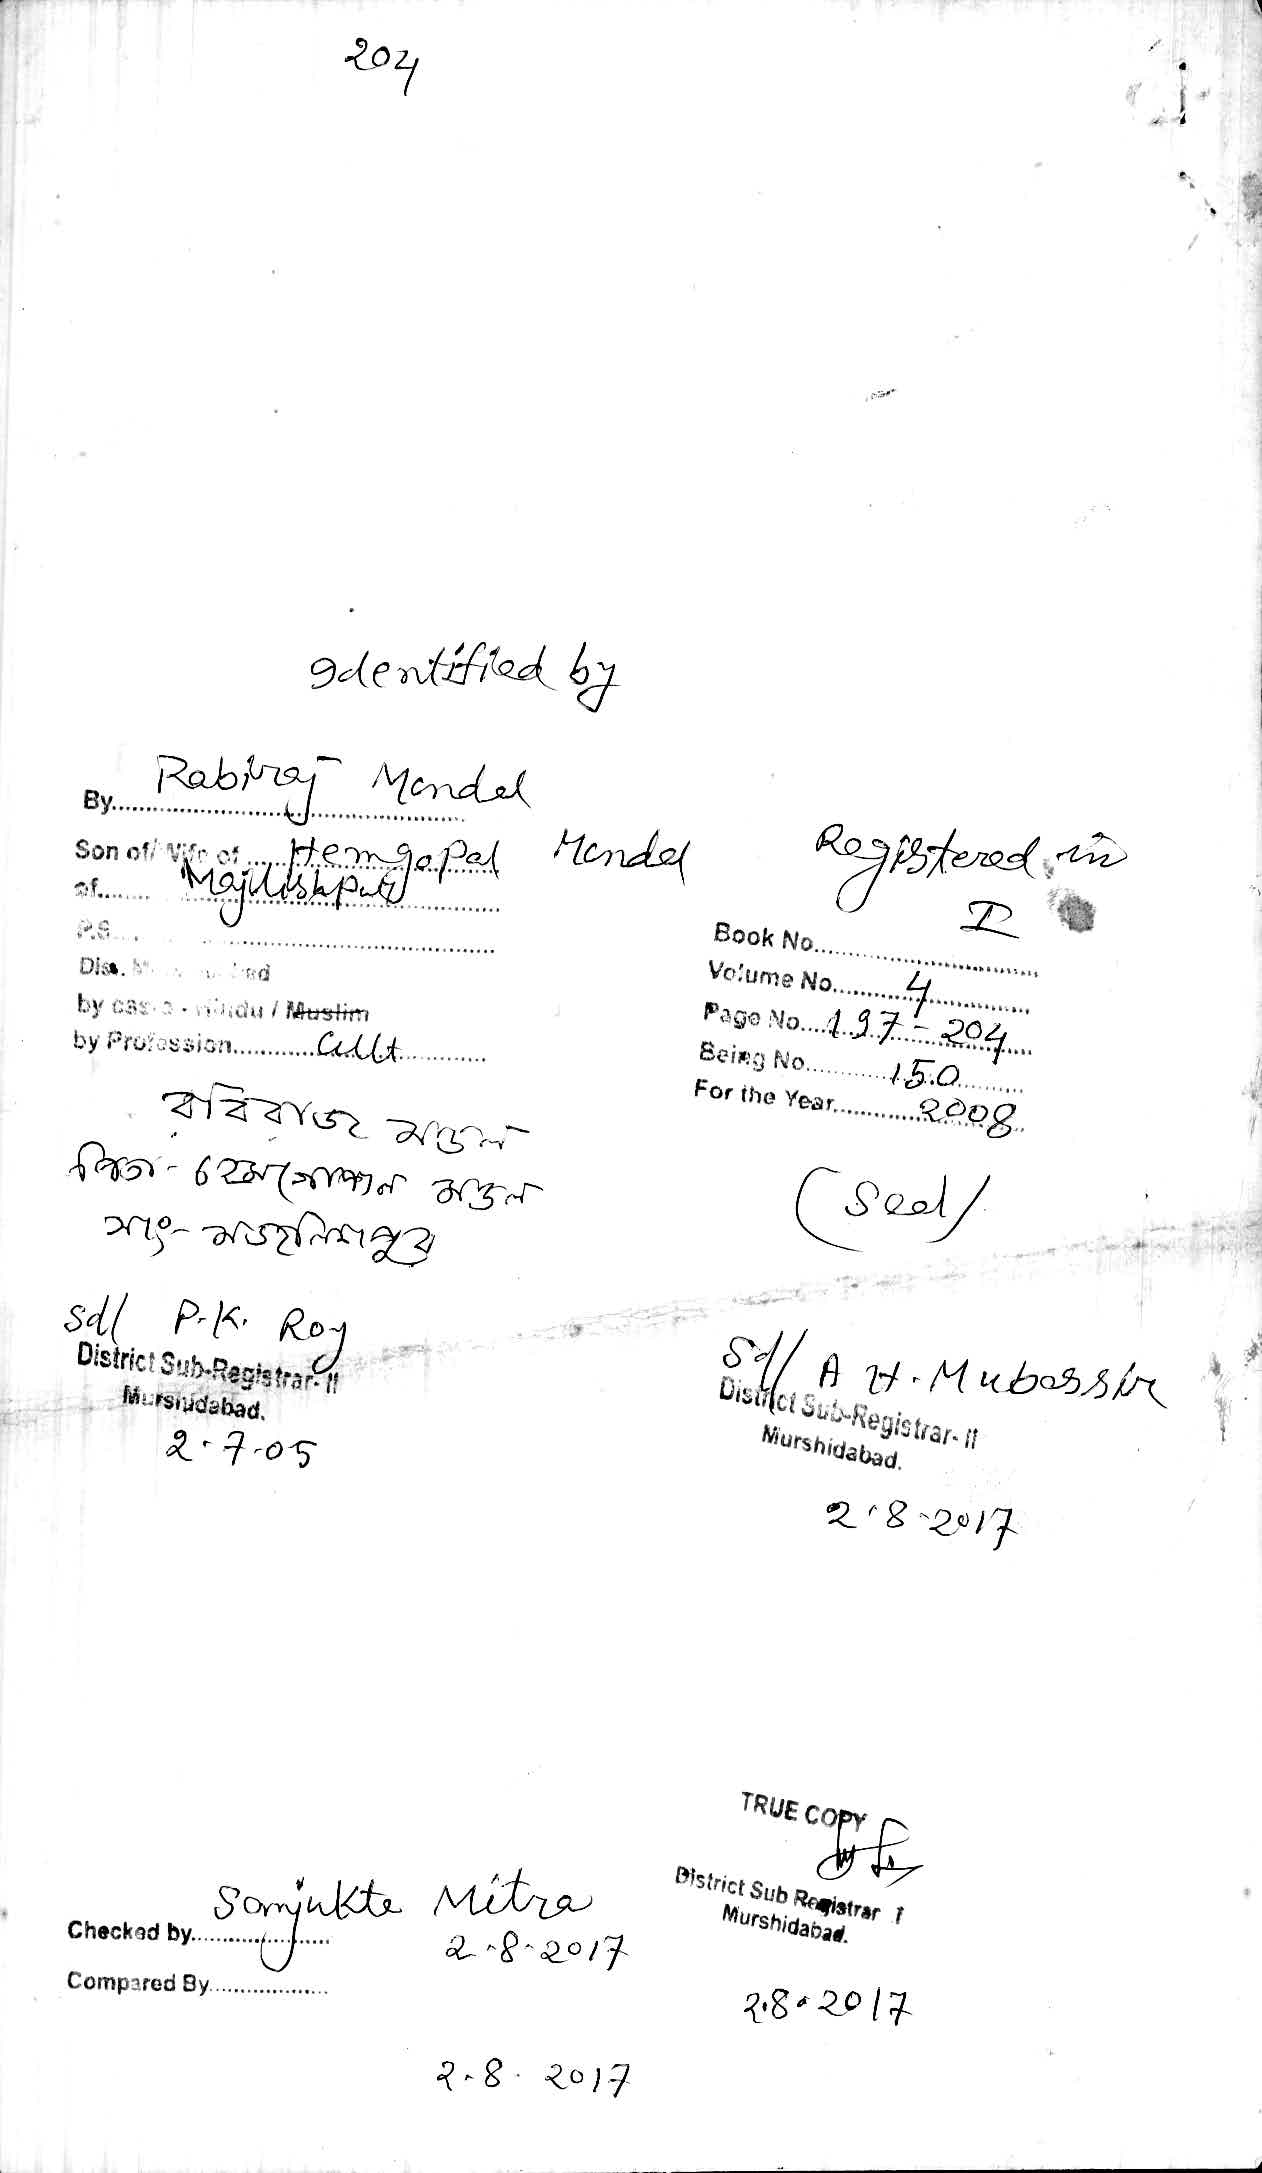 204
Identified by
By Rabiraj Mandal
Son of/ Wife of Hemgopal Mandal
of Majlishpur
P.S.
Dist.
by caste - Hindu / Muslim
by Profession Cult
রবিরাজ মন্ডল
পিতা - হেমগোপাল মন্ডল
সাং- মজলিশপুর
Sd/ P.K. Roy
District Sub-Registrar- II
Murshidabad.
2-7-05
Registered in
Book No. I
Volume No. 4
Page No. 197 - 204
Being No. 150
For the Year 2008
(Seal)
Sd/ A H. Mubassir
District Sub-Registrar- II
Murshidabad.
2-8-2017
TRUE COPY
District Sub Registrar
Murshidabad.
2.8.2017
Checked by Sanjukta Mitra
2-8-2017
Compared By
2-8-2017